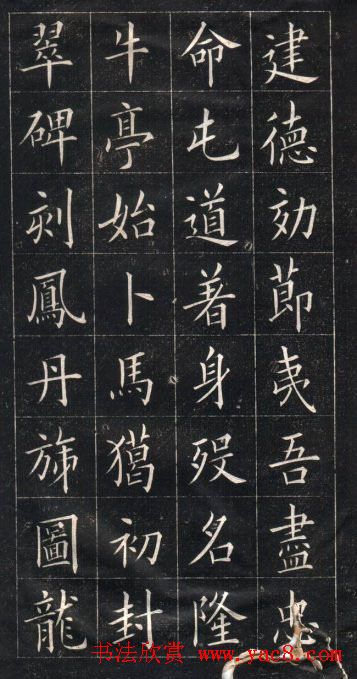 建德効節夷吾盡忠
命屯道著身殁名隆
牛亭始卜馬獦初封
翠碑刻鳳丹旐圖龍
书法欣赏 www.yac8.com